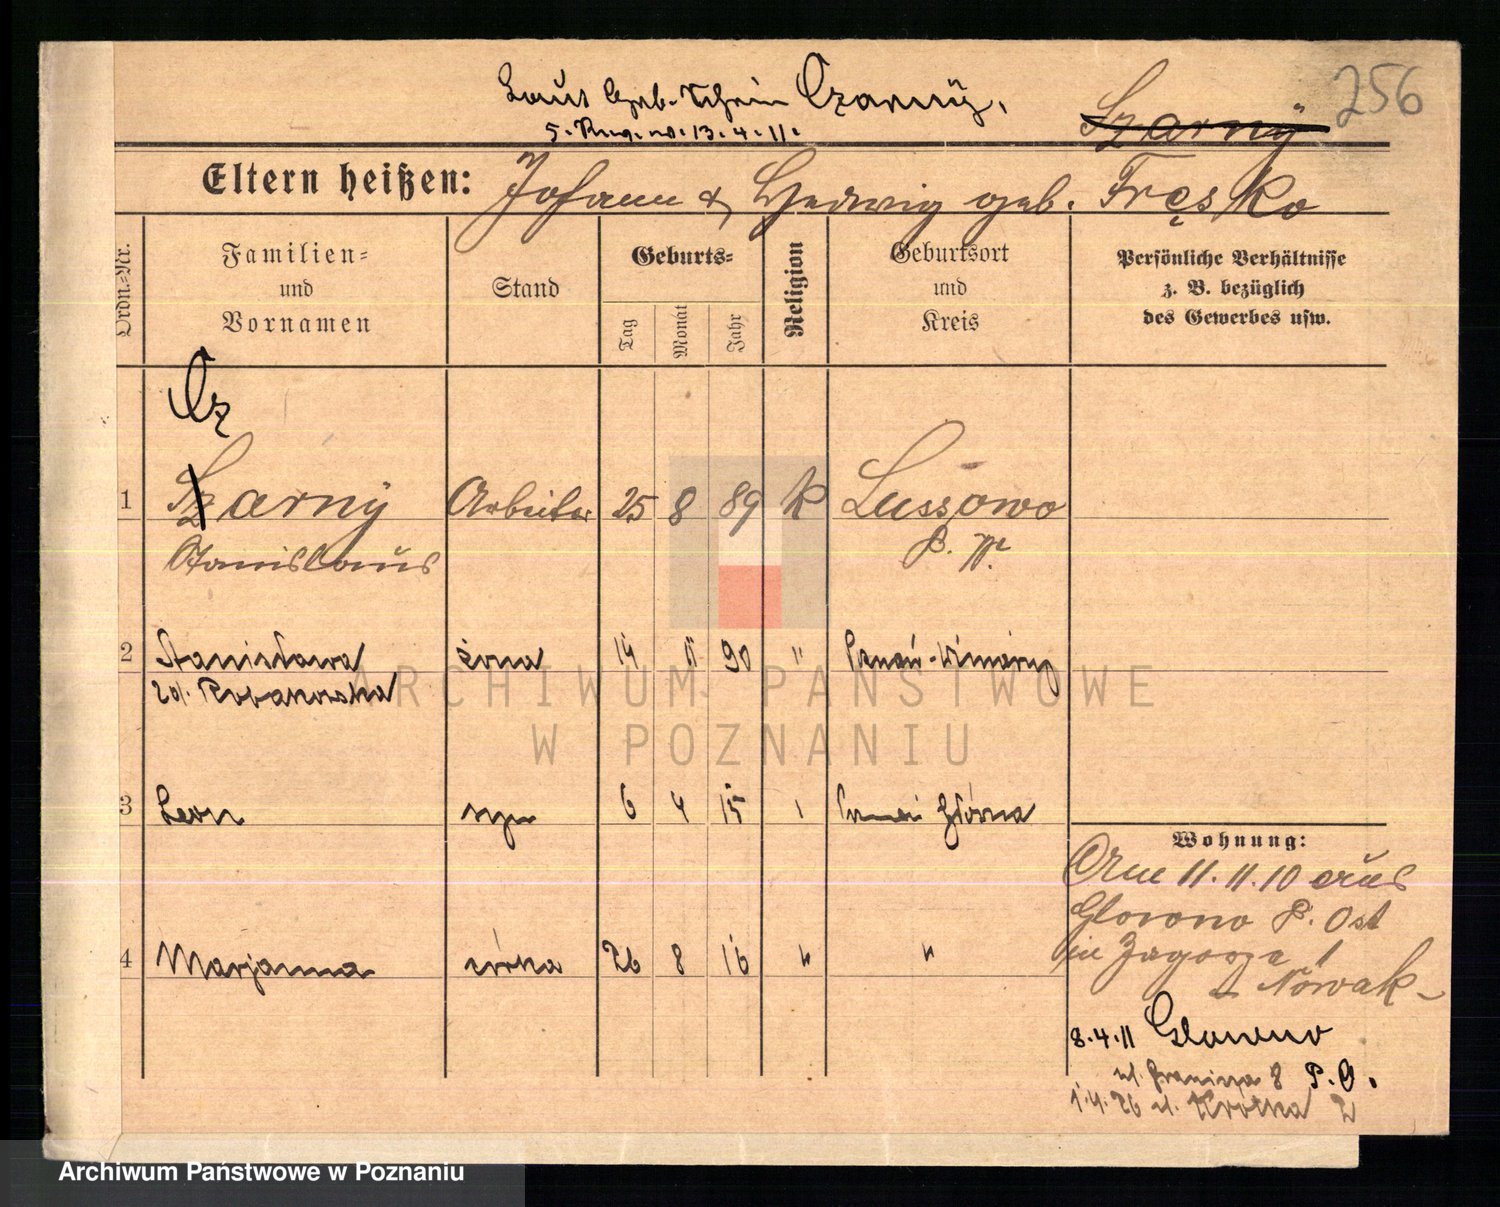 256
Laut Geb.-Schein Czarnÿ.
Szarnÿ
13.4.11.
Eltern heißen: Johann & Hedwig geb. Fręsko
Ordn.-Nr.
Familien- und Vornamen
Stand
Geburts-
Tag
Monat
Jahr
Religion
Geburtsort und Kreis
Persönliche Verhältnisse
z. B. bezüglich
des Gewerbes usw.
Cz
1 Szarnÿ Arbeiter 25 8 89 K Lussowo
Stanislaus P. W.
2 Stanisława żona 14 11 90 " Poznań-Winiary
zd. Robakowska
3 Leon syn 6 4 15 " Poznań Główna
Wohnung:
Am 11.11.10 aus
Glowno P. Ost
4 Marjanna córka 26 8 16 " "
in Zagorze 1
- Nowak -
8.4.11 Glowno
ul. 8 P.O.
1.4.26 ul. Krótka 2
ARCHIWUM PAŃSTWOWE
W POZNANIU
Archiwum Państwowe w Poznaniu